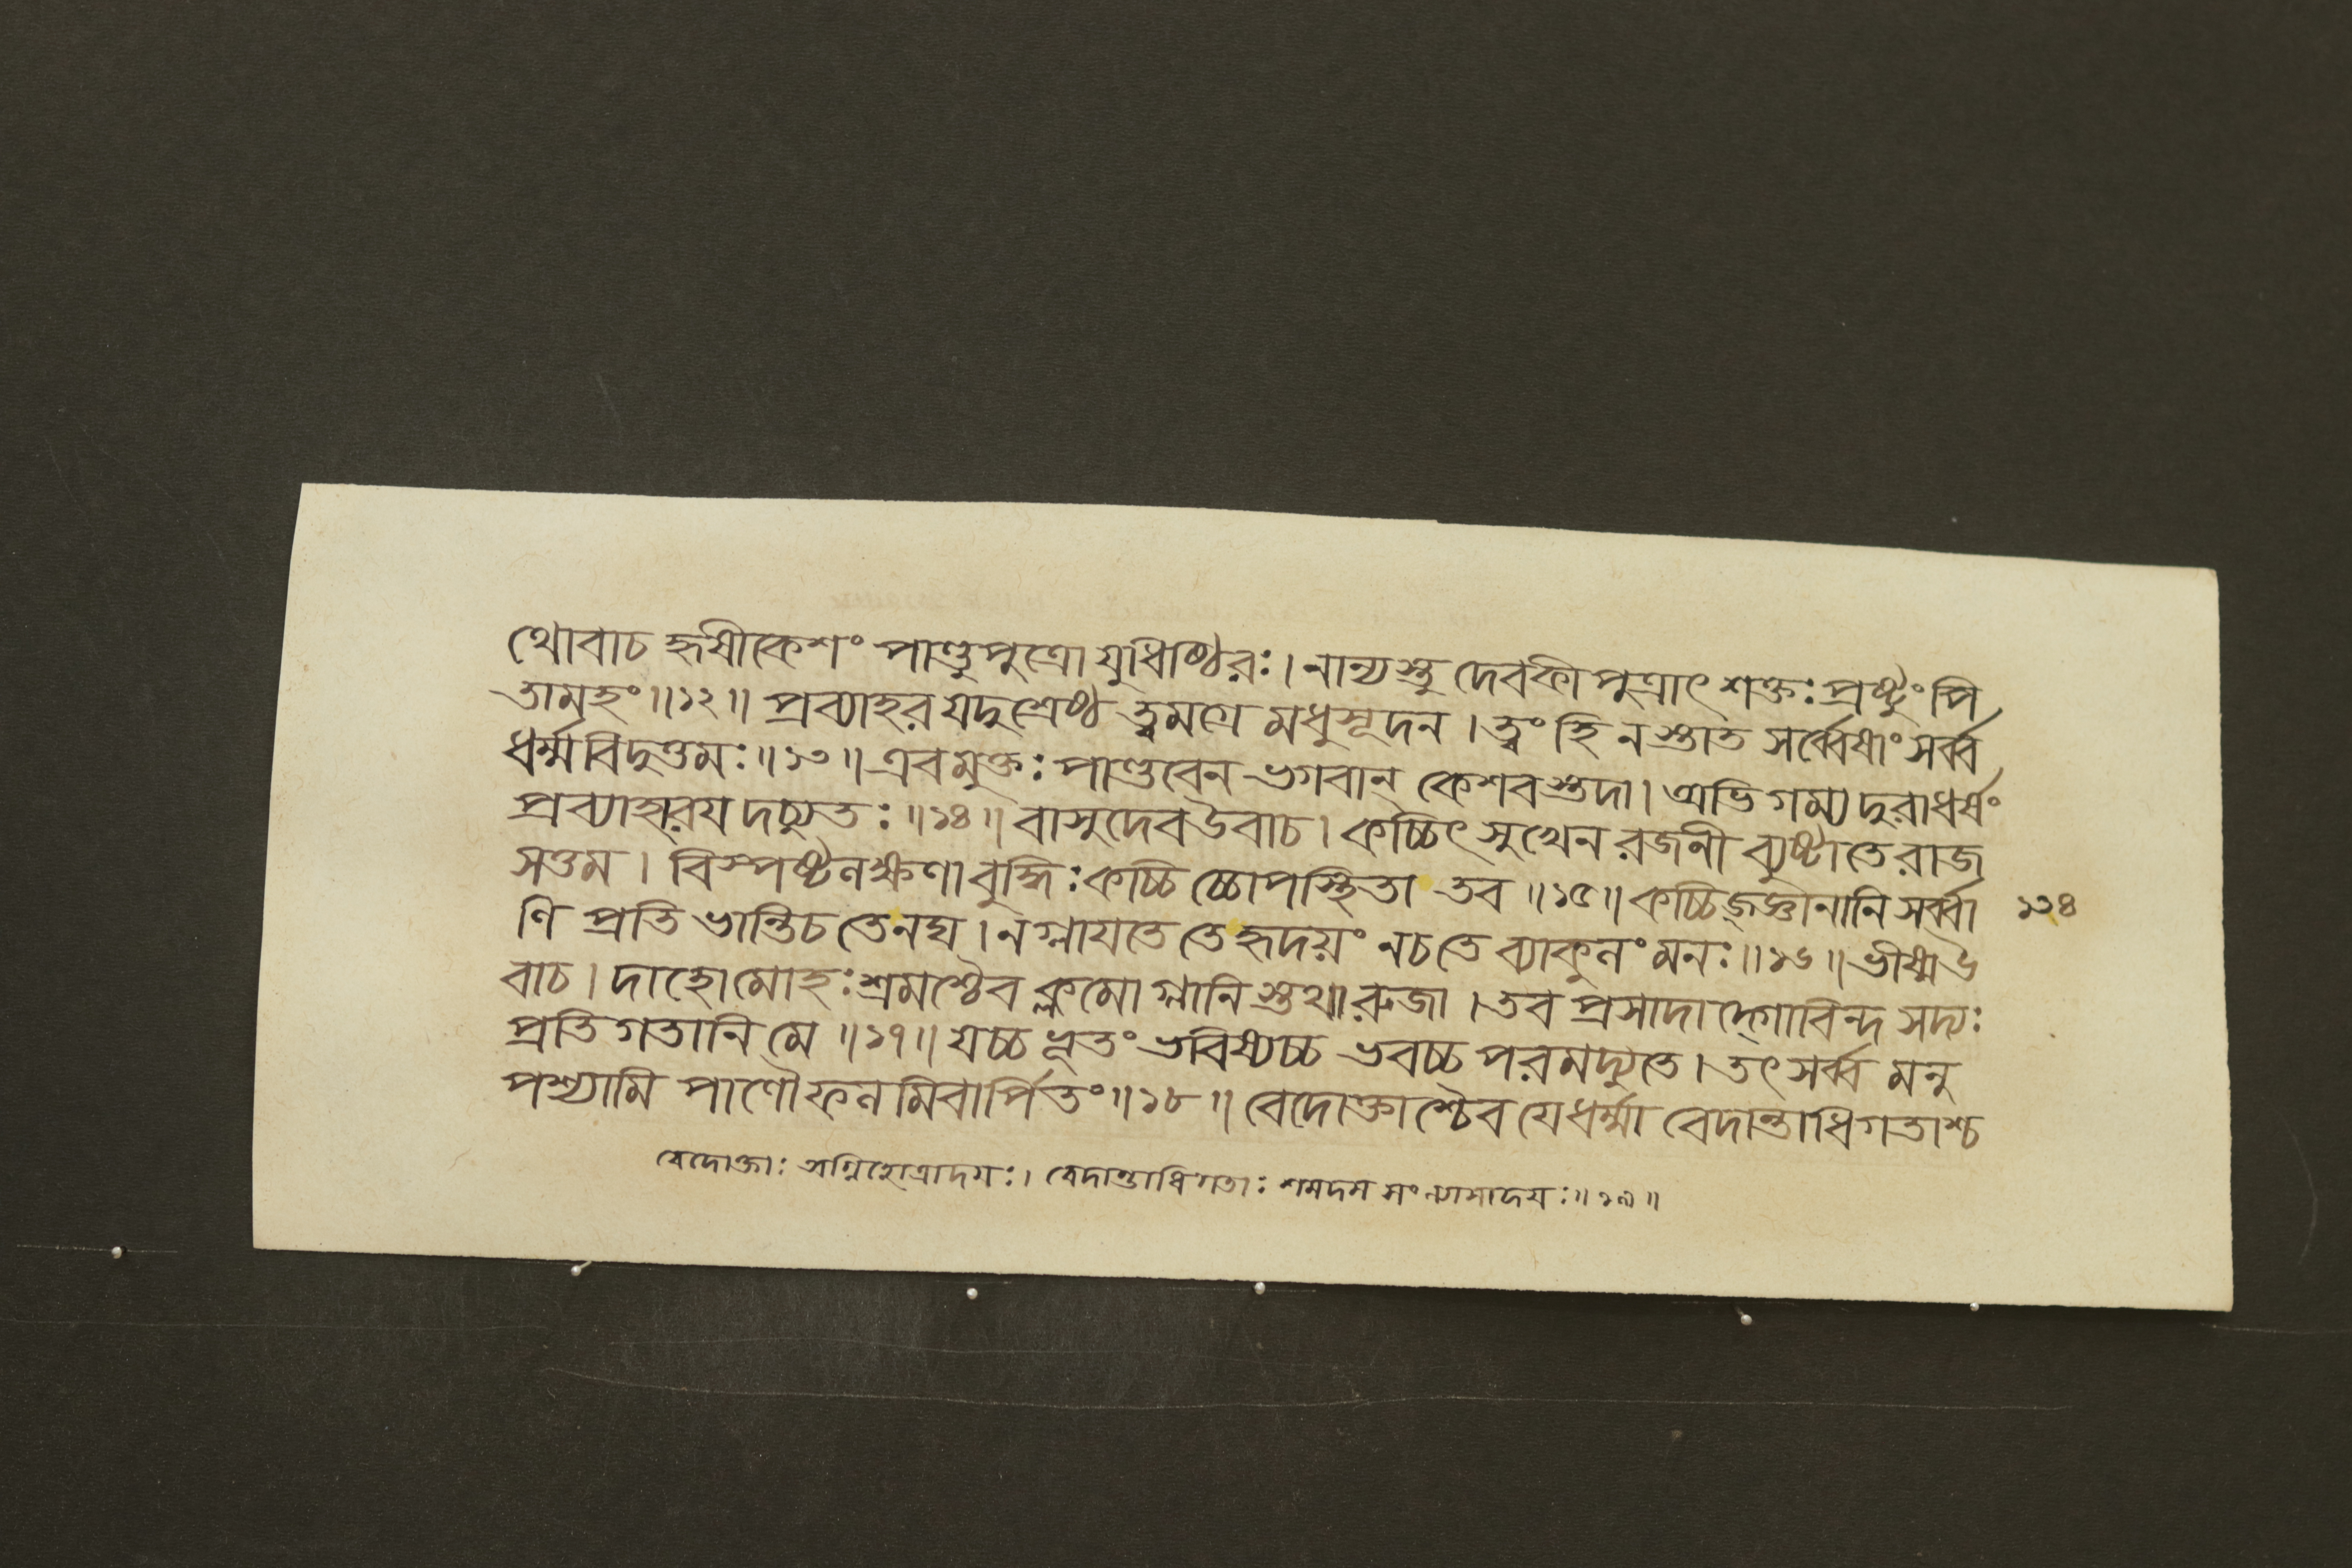 থোবাচ হৃষীকেশং পাণ্ডুপুত্রো যুধিষ্ঠিরঃ। নান্যস্তু দেবকীপুত্রাৎ শক্তঃ প্রষ্টুং পি
তামহং॥১২॥ প্রব্যাহর যদুশ্রেষ্ঠ ত্বমগ্রে মধুসূদন। ত্বং হি নস্তাত সর্ব্বেষাং সর্ব্ব
ধর্ম্মবিদুত্তমঃ॥১৩॥ এবমুক্তঃ পাণ্ডবেন ভগবান্ কেশবস্তদা। অভিগম্য দুরাধর্ষং
প্রব্যাহারয়দচ্যুতঃ॥১৪॥ বাসুদেব উবাচ। কচ্চিৎ সুখেন রজনী ব্যুষ্টা তে রাজ
সত্তম। বিস্পষ্টনক্ষণা বুদ্ধিঃ কচ্চিচ্চোপস্থিতা তব॥১৫॥ কচ্চিজ্জ্ঞানানি সর্ব্বা
ণি প্রতিভান্তি চ তেনঘ। ন গ্লাযতে তে হৃদয়ং ন চ তে ব্যাকুনং মনঃ॥১৬॥ ভীষ্ম উ
বাচ। দাহো মোহঃ শ্রমশ্চৈব ক্লমো গ্লানিস্তথা রুজা। তব প্রসাদাদ্গোবিন্দ সদ্যঃ
প্রতিগতানি মে॥১৭॥ যচ্চ ভূতং ভবিষ্যচ্চ ভবচ্চ পরমদ্যুতে। তৎ সর্ব্ব মনু
পশ্যামি পাণৌ ফনমিবার্পিতং॥১৮॥ বেদোক্তাশ্চৈব যে ধর্ম্মা বেদান্তাধিগতাশ্চ
১৩৪
বেদোক্তাঃ অগ্নিহোত্রাদয়ঃ। বেদান্তাধিগতাঃ শমদম সংন্যাসাদয়ঃ॥১৯॥